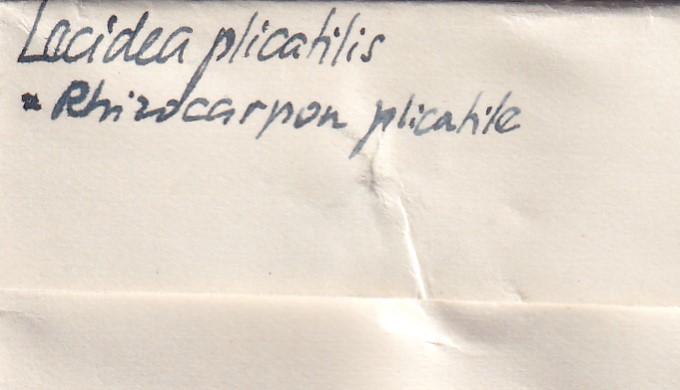 Lecidea plicatilis
= Rhizocarpon plicatile